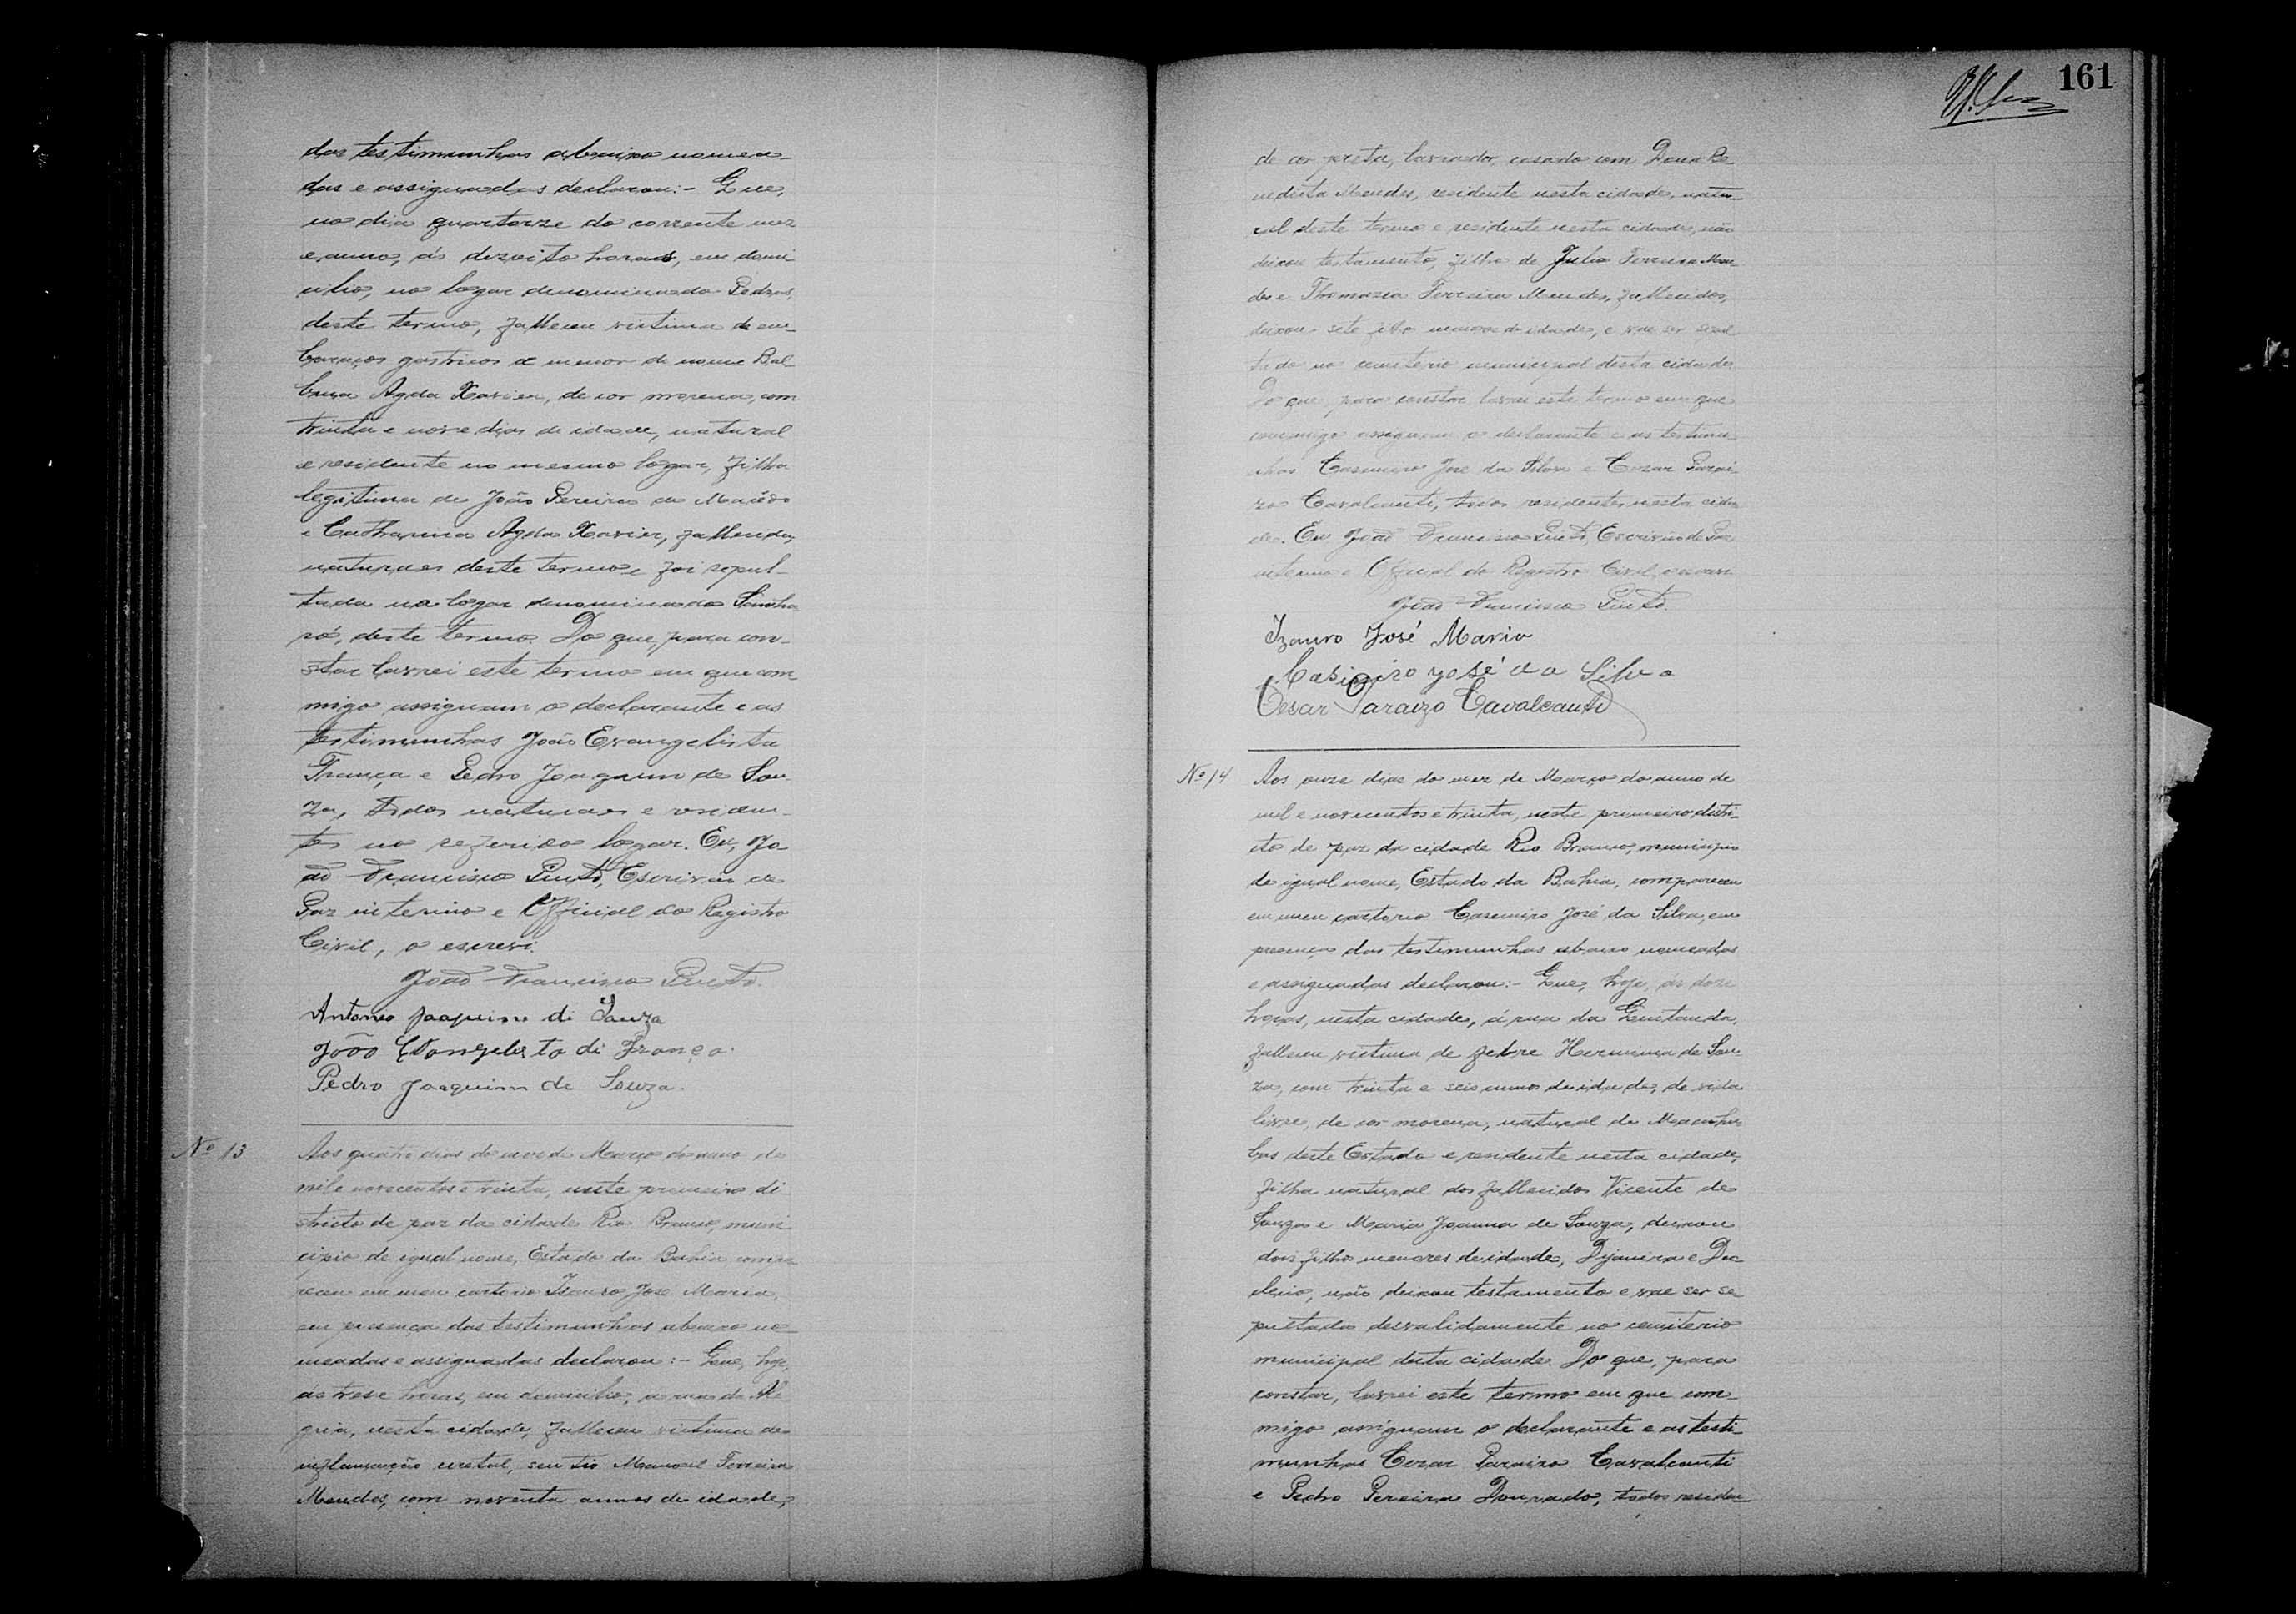 das testimunhas abaixo nomea-
das e assignadas declarou:- Que,
no dia quartorze do corrente mez
e anno, ás dezoito horas, em domi
cilio, no logar denominado Pedras,
deste termo, falleceu victima de em-
baraços gastricos a menor de nome Bal
bina Agda Xavier, de cor morena, com
trinta e nove dias de idade, natural
e residente no mesmo logar, filha
legitima de João Pereira de Macêdo
e Catharina Agda Xavier, fallecida,
naturaes deste termo e foi sepul-
tada no logar denominado
só, deste termo. Do que, para con-
star lavrei este termo em que com
migo assignam o declarante e as
testimunhas João Evangelista
França e Pedro Joaquim de Sou
za, todos naturaes e residen-
tes no referido logar. Eu, Jo-
ão Francisco Pinto, Escrivão de
Paz interino e Official do Registro
Civil, o escrevi.
João Francisco Pinto.
Antonio Joaquim di Souza
João Evangelista di França
Pedro Joaquim de Souza.
Nº 13
Aos quatro dias do mez de Março do anno de
mil e novecentos e trinta, neste primeiro di
stricto de paz da cidade Rio Branco, muni
cipio de igual nome, Estado da Bahia compa
receu em meu cartorio Izauro José Maria,
em presença das testimunhas abaixo no
meadas e assignadas declarou:- Que, hoje,
ás trese horas, em domicilio, a rua da Ale
gria, nesta cidade, falleceu victima de
inflamação uretal, seu tio Manoel Ferreira
Mendes, com noventa annos de idade,
161
de cor preta, lavrador, casado com Dona Be
nedicta Mendes, residente nesta cidade, natu-
ral deste termo e residente nesta cidade, não
deixou testamento, filho de Julio Ferreira Men
des e Thomazia Ferreira Mendes, fallecidos,
deixou sete filhos de idade, e vae ser sepul
tado no cemiterio municipal desta cidade
Do que, para constar lavrei este termo em que
commigo assignam o declarante e as testimu
nhas Casimiro José da Silva e Cezar Parai
zo Cavalcanti, todos residentes nesta cida
de. Eu João Francisco Pinto, Escrivão de Paz
interino e Official do Registro Civil, o escrevi
João Francisco Pinto.
Izauro José Maria
Casimiro José da Silva
Cesar Paraizo Cavalcanti
Nº 14
Aos onze dias do mez de Março do anno de
mil e novecentos e trinta, neste primeiro distri-
cto de paz da cidade Rio Branco, municipio
de igual nome, Estado da Bahia, compareceu
em meu cartorio Casemiro José da Silva, em
presença das testimunhas abaixo nomeadas
e assignadas declarou:- Que, hoje, ás doze
horas, nesta cidade, á rua da Quitanda,
falleceu victima de febre Herminia de Sou
za, com trinta e seis annos de idade, de vida
livre, de cor morena, natural de Macahu
bas deste Estado e residente nesta cidade,
filha natural dos fallecidos Vicente de
Souza e Maria Joanna de Souza, deixou
dois filhos menores de idade, Dejanira e Deo
clecio, não deixou testamento e vae ser se
pultada desvalidamente no cemiterio
municipal desta cidade. Do que, para
constar, lavrei este termo em que com-
migo assignam o declarante e as testi-
munhas Cezar Paraizo Cavalcanti
e Pedro Pereira Dourado, todos residen-